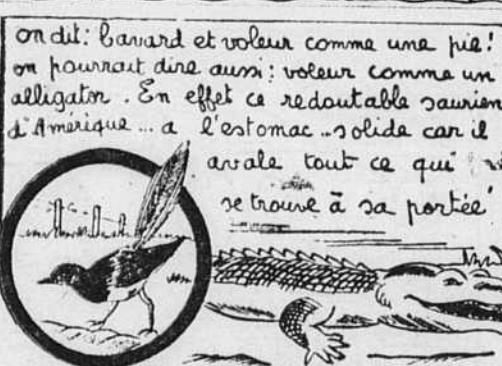 on dit: bavard et voleur comme une pie!
on pourrait dire aussi: voleur comme un
alligator. En effet ce redoutable saurien
d'Amérique... a l'estomac... solide car il
avale tout ce qui
se trouve à sa portée